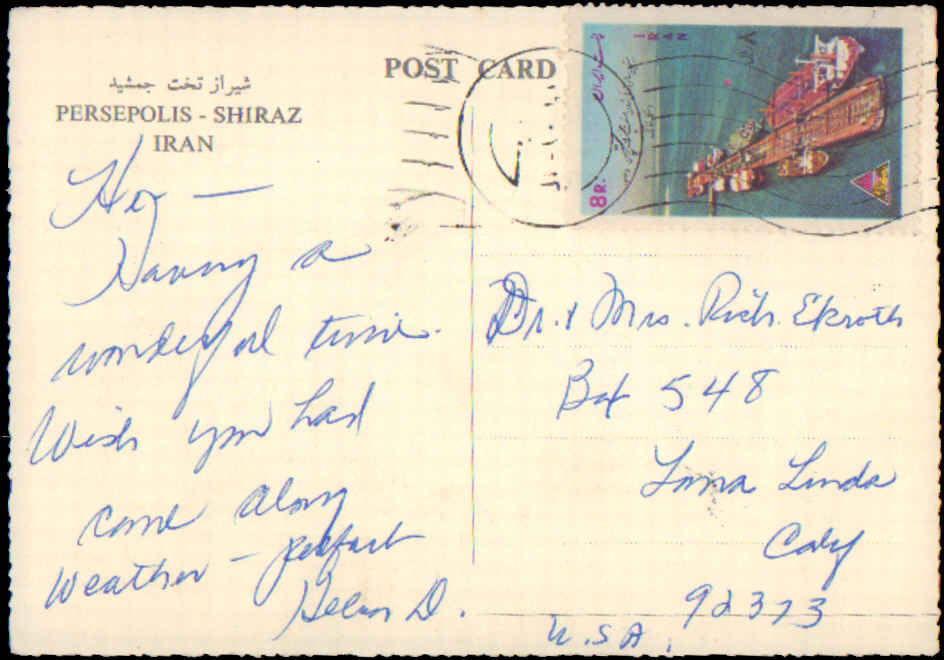 شیراز تخت جمشید
PERSEPOLIS - SHIRAZ
IRAN
POST CARD
IRAN
8R.
Hey —
Having a
wonderful time.
Wish you had
come along
Weather – perfect
Helen D.
Dr. & Mrs. Rich. Ekroth
Box 548
Loma Linda
Calif
92373
U.S.A.